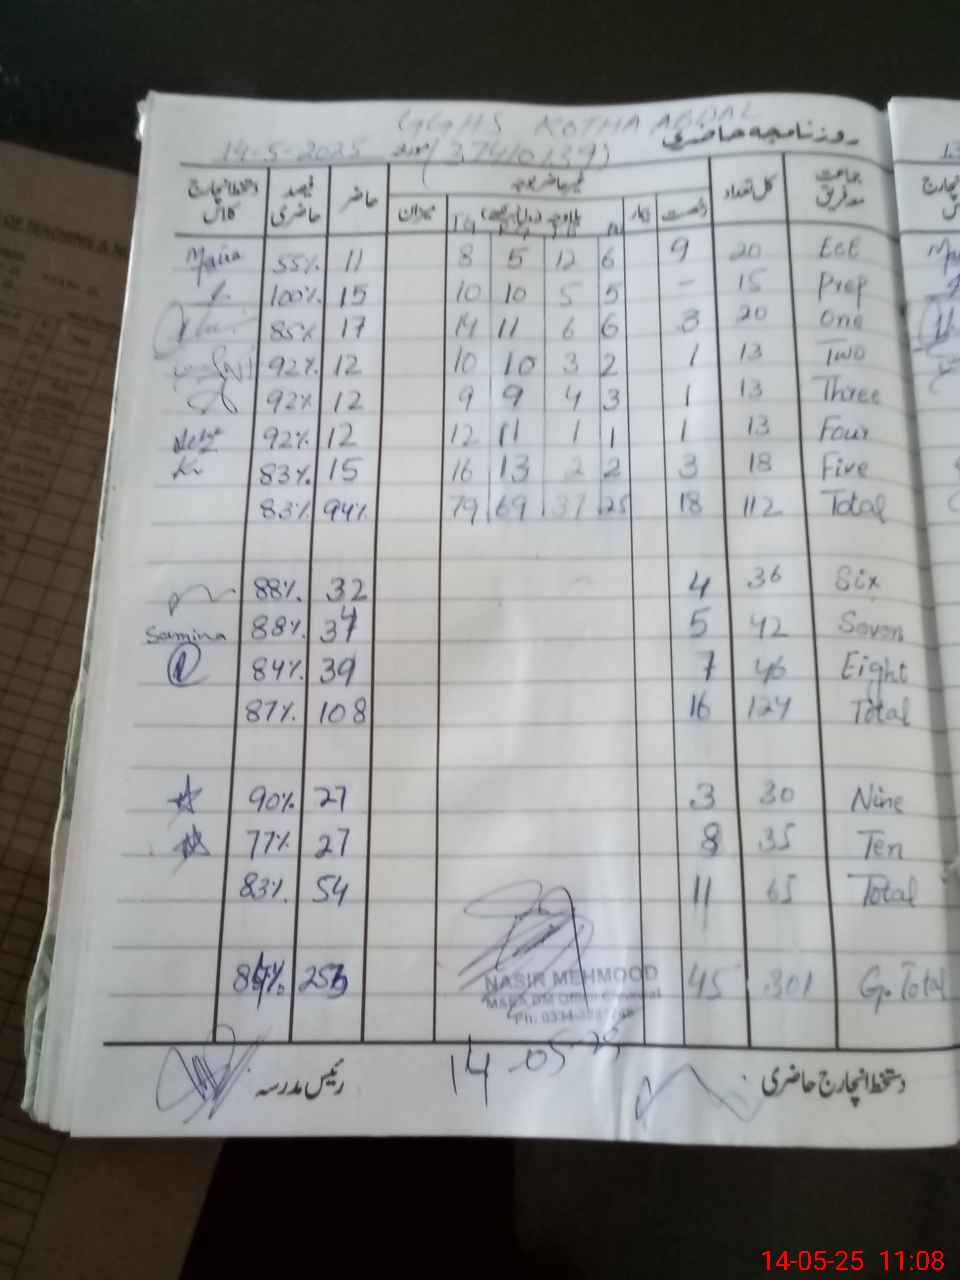 GGHS KOTHA ABDAL
روزنامچہ حاضری
14-5-2025 (37410139)
دستخط انچارج کلاس فیصد حاضری حاضر میزان غیر حاضر بوجہ رخصت کل تعداد جماعت معہ فریق
Maria 55% 11 8 5 12 6 9 20 ECE
100% 15 10 10 5 5 - 15 Prep
85% 17 14 11 6 6 3 20 One
92% 12 10 10 3 2 1 13 Two
92% 12 9 9 4 3 1 13 Three
92% 12 12 11 1 1 1 13 Four
83% 15 16 13 2 2 3 18 Five
83% 94% 79 69 37 25 18 112 Total
88% 32 4 36 Six
Samina 88% 37 5 42 Seven
84% 39 7 46 Eight
87% 108 16 124 Total
90% 27 3 30 Nine
77% 27 8 35 Ten
83% 54 11 65 Total
45 301 G.Total
NASIR MEHMOOD
14-05-25
رئیس مدرسہ
دستخط انچارج حاضری
14-05-25 11:08